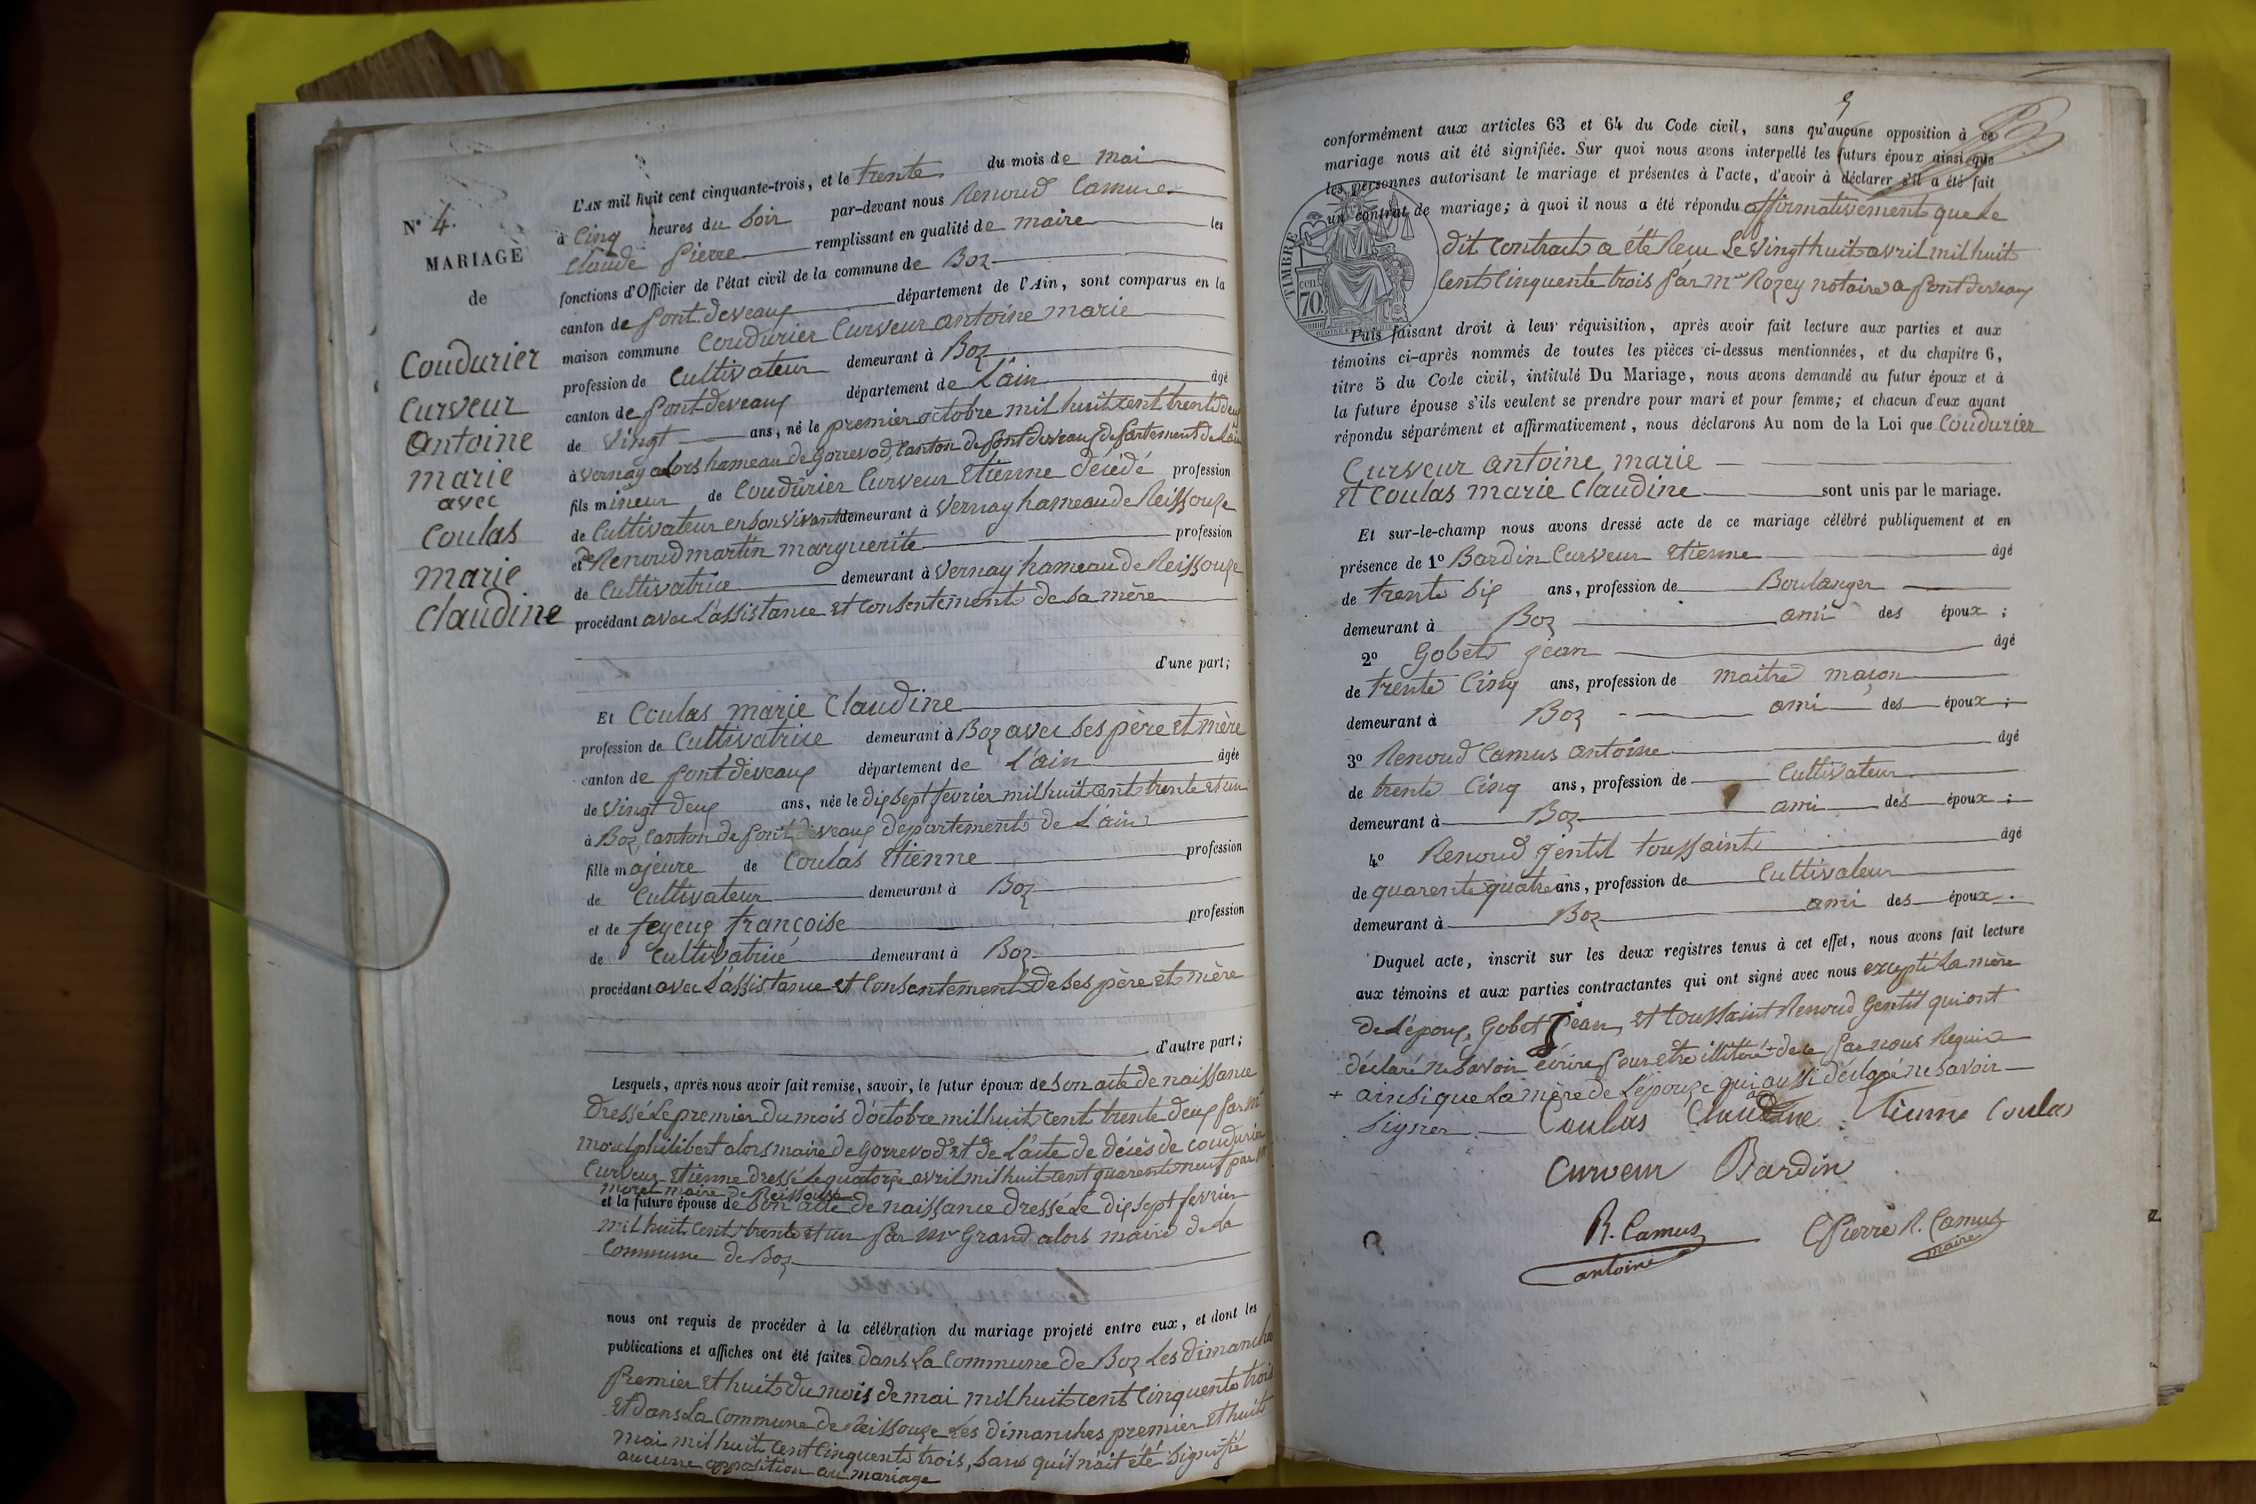 N° 4.
MARIAGE
de
Coudurier
Curveur
antoine
marie
avec
Coulas
marie
Claudine
L'AN mil huit cent cinquante-trois, et le trente du mois de mai
à Cinq heures du Soir par-devant nous Renoud Camus
Claude Pierre remplissant en qualité de maire les
fonctions d'Officier de l'état civil de la commune de Boz
canton de pont deveaux département de l'Ain, sont comparus en la
maison commune Coudurier Curveur antoine marie
profession de Cultivateur demeurant à Boz
canton de pont deveaux département de L'ain âgé
de Vingt ans, né le premier octobre mil huit cent trente deux
à Vernay alors hameau de Gorrevod, Canton de pont deveaux département de L'ain
fils mineur de Coudurier Curveur Etienne décédé profession
de Cultivateur en son vivant demeurant à Vernay hameau de Reissouze
et de Renoud martin marguerite profession
de Cultivatrice demeurant à Vernay hameau de Reissouze
procédant avec L'assistance et Consentement de sa mère
d'une part;
Et Coulas marie Claudine
profession de Cultivatrice demeurant à Boz avec ses père et mère
canton de pont deveaux département de L'ain âgée
de Vingt deux ans, née le dix sept fevrier mil huit cent trente et un
à Boz, Canton de pont deveaux département de L'ain
fille majeure de Coulas Etienne profession
de Cultivateur demeurant à Boz
et de feyeux françoise profession
de Cultivatrice demeurant à Boz
procédant avec L'assistance et Consentement de ses père et mère
d'autre part;
Lesquels, après nous avoir fait remise, savoir, le futur époux de son acte de naissance
Dressé Le premier du mois d'octobre mil huit cent trente deux par mr
philibert alors maire de Gorrevod et de L'acte de décès de Coudurier
Curveur Etienne dressé Le quatorze avril mil huit cent quarente neuf par mr
morel maire de Reissouze
et la future épouse de son acte de naissance dressé Le dix sept fevrier
mil huit cent trente et un par mr Grand alors maire de La
Commune de Boz
nous ont requis de procéder à la célébration du mariage projeté entre eux, et dont les
publications et affiches ont été faites dans La Commune de Boz Les dimanches
premier et huit du mois de mai mil huit cent Cinquente trois
Et dans La Commune de Reissouze Les dimanches premier et huit
mai mil huit cent Cinquente trois, sans qu'il n'ait été signifié
aucune opposition au mariage
conformément aux articles 63 et 64 du Code civil, sans qu'aucune opposition à ce
mariage nous ait été signifiée. Sur quoi nous avons interpellé les futurs époux ainsi que
les personnes autorisant le mariage et présentes à l'acte, d'avoir à déclarer s'il a été fait
un contrat de mariage; à quoi il nous a été répondu affirmativement que Le
dit Contrat a été Reçu Le Vingt huit avril mil huit
Cent Cinquente trois par Mr Rozey notaire a pont deveaux
TIMBRE
70
cen.
Puis faisant droit à leur réquisition, après avoir fait lecture aux parties et aux
témoins ci-après nommés de toutes les pièces ci-dessus mentionnées, et du chapitre 6,
titre 5 du Code civil, intitulé Du Mariage, nous avons demandé au futur époux et à
la future épouse s'ils veulent se prendre pour mari et pour femme; et chacun d'eux ayant
répondu séparément et affirmativement, nous déclarons Au nom de la Loi que Coudurier
Curveur antoine marie
Et Coulas marie Claudine sont unis par le mariage.
Et sur-le-champ nous avons dressé acte de ce mariage célébré publiquement et en
présence de 1° Bardin Curveur Etienne âgé
de trente six ans, profession de Boulanger
demeurant à Boz ami des époux;
2° Gobet jean âgé
de trente Cinq ans, profession de maitre maçon
demeurant à Boz ami des époux;
3° Renoud Camus antoine âgé
de trente Cinq ans, profession de Cultivateur
demeurant à Boz ami des époux;
4° Renoud Gentil toussaint âgé
de quarente quatre ans, profession de Cultivateur
demeurant à Boz ami des époux.
Duquel acte, inscrit sur les deux registres tenus à cet effet, nous avons fait lecture
aux témoins et aux parties contractantes qui ont signé avec nous excepté La mère
de L'époux, Gobet Jean, et toussaint Renoud Gentil qui ont
déclaré ne savoir écrire pour etre illitéré de ce par nous Requis
+ ainsi que La mère de L'épouze qui a aussi déclaré ne savoir
Signer. Coulas Claudine Etienne Coulas
Curveur Bardin
R. Camus antoine
C Pierre R. Camus
maire